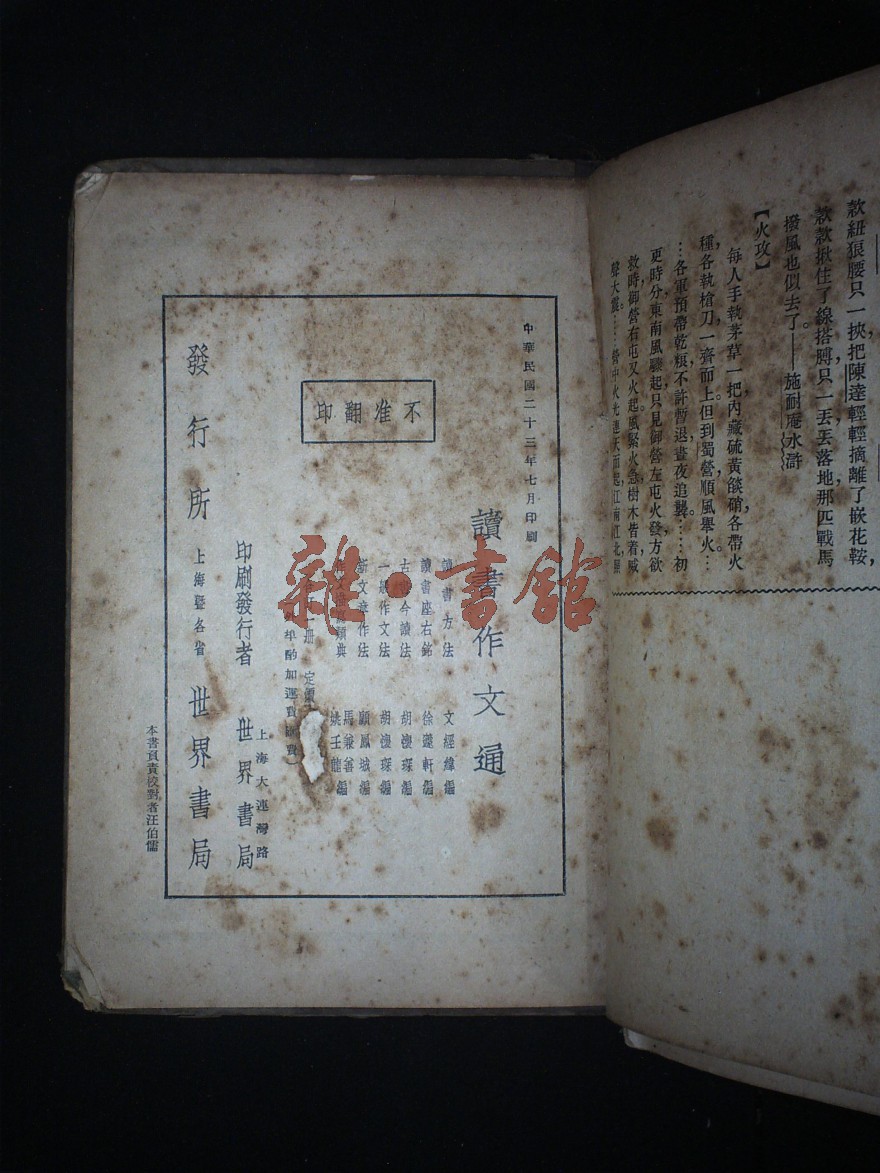 款紐狠腰只一挾把陳達輕輕摘離了嵌花鞍，
款款揪住了線搭膊只一丟丟落地那匹戰馬
撥風也似去了——施耐庵水滸
【火攻】
每人手執茅草一把內藏硫黃燄硝各帶火
種，各執槍刀一齊而上但到蜀營順風舉火…
…各軍預帶乾糧不許暫退晝夜追襲……初
更時分東南風驟起只見御營左屯火發方欲
救時御營右屯又火起風緊火急樹木皆着喊
聲大震……營中火光連天而起江南江北照
中華民國二十三年七月印刷
讀書作文通
讀書方法 文經緯編
讀書座右銘 徐蘧軒編
古 今讀法 胡懷琛編
一般作文法 胡懷琛編
新文章作法 顧鳳城編
類典 馬兼善
姚壬龍編
冊 定價
酌加運費匯費）
不准翻印
印刷發行者 上海大連灣路 世界書局
發行所 上海暨各省 世界書局
本書負責校對者汪伯儒
雜·書館